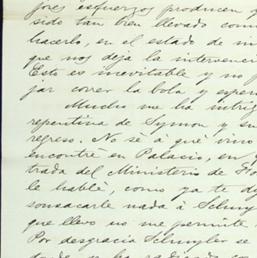 jores esfuerzos producen
sido tan bien llevado como
hacerlo, en el estado de
que nos deja la intervenci
Esto es inevitable y no
jar correr la bola y esper
Mucho me ha intrig
repentina de Symon y su
regreso. No sé á qué vino
encontré en Palacio, en
trada del Ministerio de
le hablé, como ya te dij
sonsacarle nada á Schuy
que llevo no me permite
Por desgracia Schuyler se